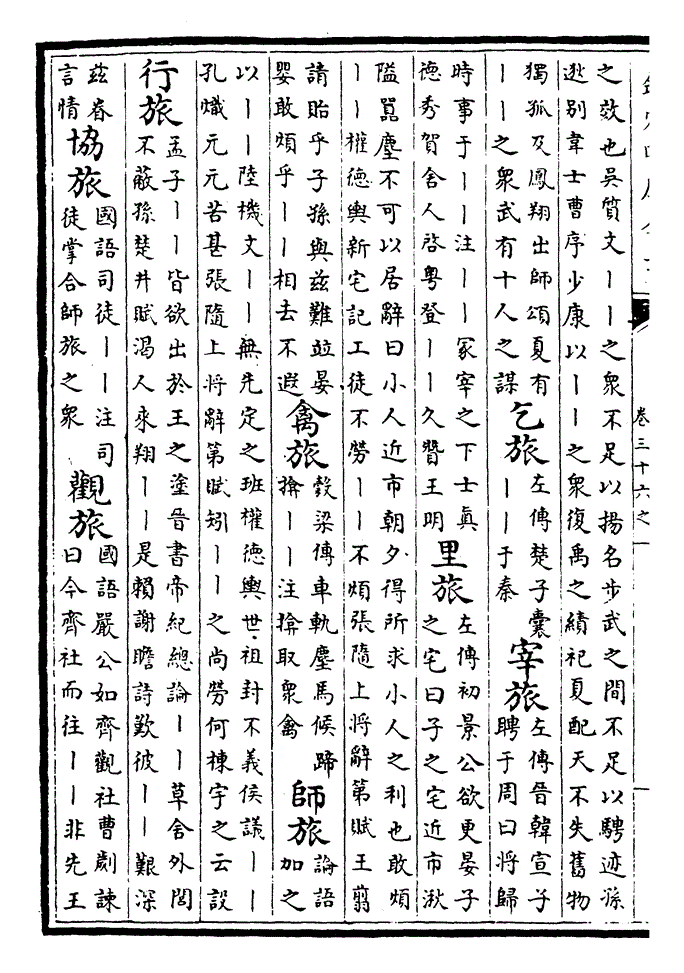 卷三十六之一
之效也吳質文丨丨之衆不足以揚名步武之間不足以騁迹孫
逖别韋士曹序少康以丨丨之衆復禹之績祀夏配天不失舊物
獨孤及鳳翔出師頌夏有
丨丨之衆武有十人之謀
乞旅
左傳楚子囊
丨丨于秦
宰旅
左傳晉韓宣子
聘于周曰將歸
時事于丨丨注丨丨冢宰之下士眞
德秀賀舍人啓粤登丨丨久贊王明
里旅
左傳初景公欲更晏子
之宅曰子之宅近市湫
隘囂塵不可以居辭曰小人近市朝夕得所求小人之利也敢煩
丨丨權德輿新宅記工徒不勞丨丨不煩張隨上將辭第賦王翦
請貽乎子孫與兹難竝晏
嬰敢煩乎丨丨相去不遐
禽旅
穀梁傳車軌塵馬候蹄
揜丨丨注揜取衆禽
師旅
論語
加之
以丨丨陸機文丨丨無先定之班權德輿世祖封不義侯議丨丨
孔熾元元苦甚張隨上將辭第賦矧丨丨之尚勞何棟宇之云設
行旅
孟子丨丨皆欲出於王之塗晉書帝紀總論丨丨草舍外閭
不蔽孫楚井賦渴人來翔丨丨是賴謝瞻詩歎彼丨丨艱深
兹眷
言情
協旅
國語司徒丨丨注司
徒掌合師旅之衆
觀旅
國語嚴公如齊觀社曹劌諫
曰今齊社而往丨丨非先王